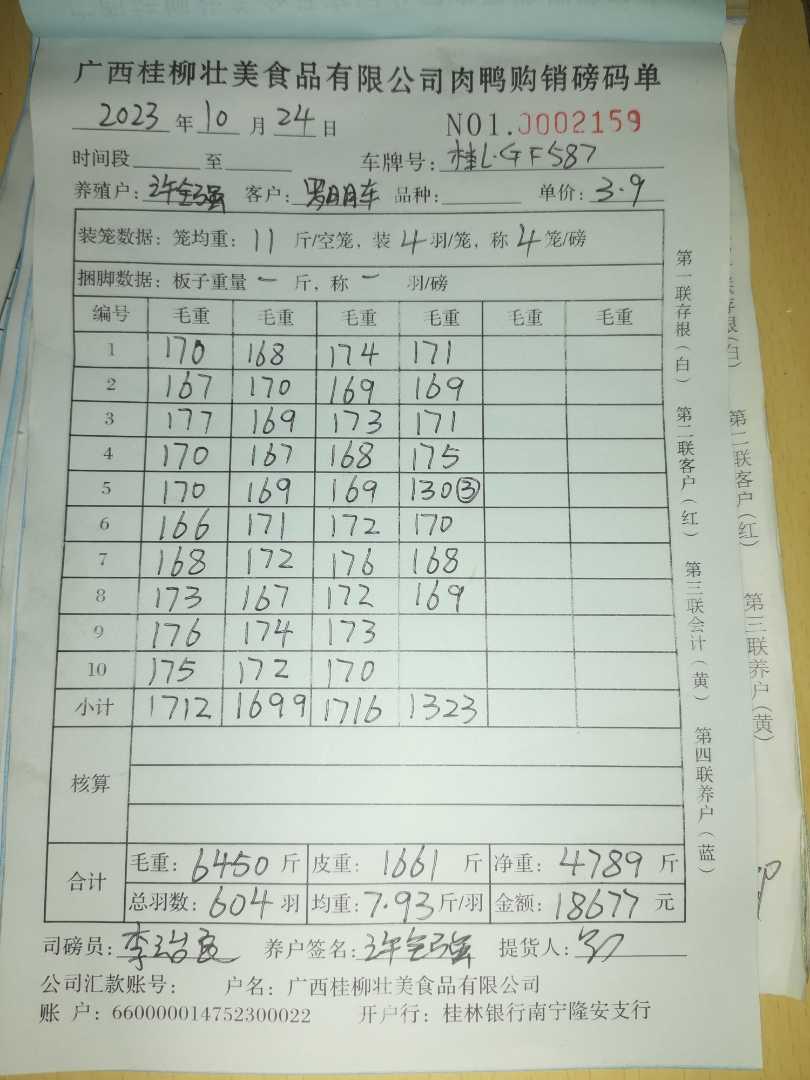 广西桂柳壮美食品有限公司肉鸭购销磅码单
2023年10月24日 NO1.0002159
时间段 至 车牌号:桂L·GF587
养殖户:许全强 客户:罗月月车 品种: 单价:3.9
装笼数据:笼均重:11斤/空笼,装4羽/笼,称4笼/磅
捆脚数据:板子重量一斤,称一羽/磅
编号 毛重 毛重 毛重 毛重 毛重 毛重
1 170 168 174 171
2 167 170 169 169
3 177 169 173 171
4 170 167 168 175
5 170 169 169 130③
6 166 171 172 170
7 168 172 176 168
8 173 167 172 169
9 176 174 173
10 175 172 170
小计 1712 1699 1716 1323
核算
合计 毛重:6450斤 皮重:1661斤 净重:4789斤
总羽数:604羽 均重:7.93斤/羽 金额:18677元
司磅员: 养户签名:许全强 提货人:
公司汇款账号: 户名:广西桂柳壮美食品有限公司
账 户:660000014752300022 开户行:桂林银行南宁隆安支行
第一联存根(白) 第二联客户(红) 第三联会计(黄) 第四联养户(蓝)
第二联客户(红) 第三联养户(黄)